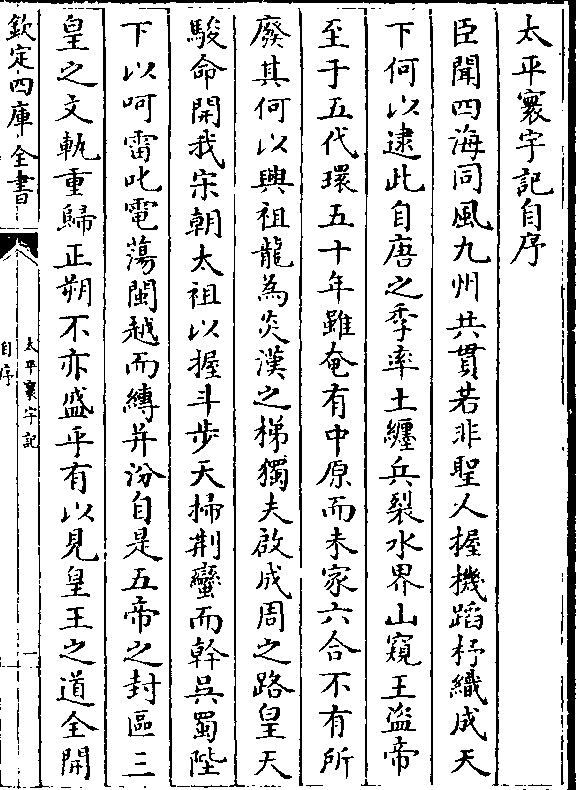 太平寰宇記自序
臣聞四海同風九州共貫若非聖人握機蹈杼織成天
下何以逮此自唐之季率土纏兵裂水界山窺王盜帝
至于五代環五十年雖奄有中原而未家六合不有所
廢其何以興祖龍為炎漢之梯獨夫啟成周之路皇天
駿命開我宋朝太祖以握斗步天掃荆蠻而幹吳蜀陛
下以呵雷叱電蕩閩越而縛并汾自是五帝之封區三
皇之文軌重歸正朔不亦盛乎有以見皇王之道全開
欽定四庫全書
太平寰宇記
自序
一